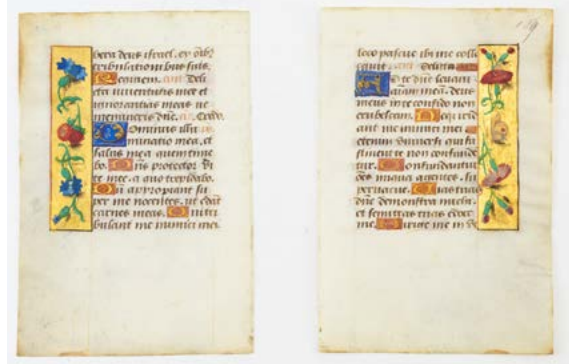 bera deus israel. ex oībꝫ
tribulationibus suis.
Requiem. ant. Deli
cta iuuentutis mee et
ignorantias meas ne
memineris dn̄e. Credo.
Dominus illu
minatio mea, et
salus mea quem time
bo. Dn̄s protector vi
te mee, a quo trepidabo.
Dū appropiant su
per me nocentes, ut edāt
carnes meas. Qui tri
bulant me inimici mei
loco pascue ibi me coll
ant. Delicta
Ad te dn̄e leuaui
animam meā. deus
meus in te confido non
erubescam. Neqꝫ irride
ant me inimici mei
etenim uniuersi qui su
stinent te non confunde
tur. Confundantur
oēs iniqua agentes, su
peruacue. Vias tuas
dn̄e demonstra michi
et semitas tuas edoce
me. Dirige me in